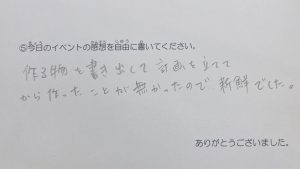 ⑤今日のイベントの感想を自由に書いてください。
作る物を書き出して計画を立てて
から作ったことが無かったので新鮮でした。
ありがとうございました。